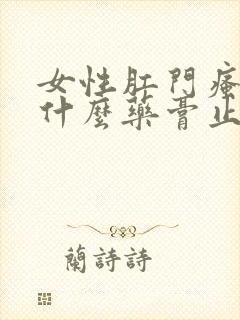 女性肛門瘙
什麼藥膏止
蘭詩詩